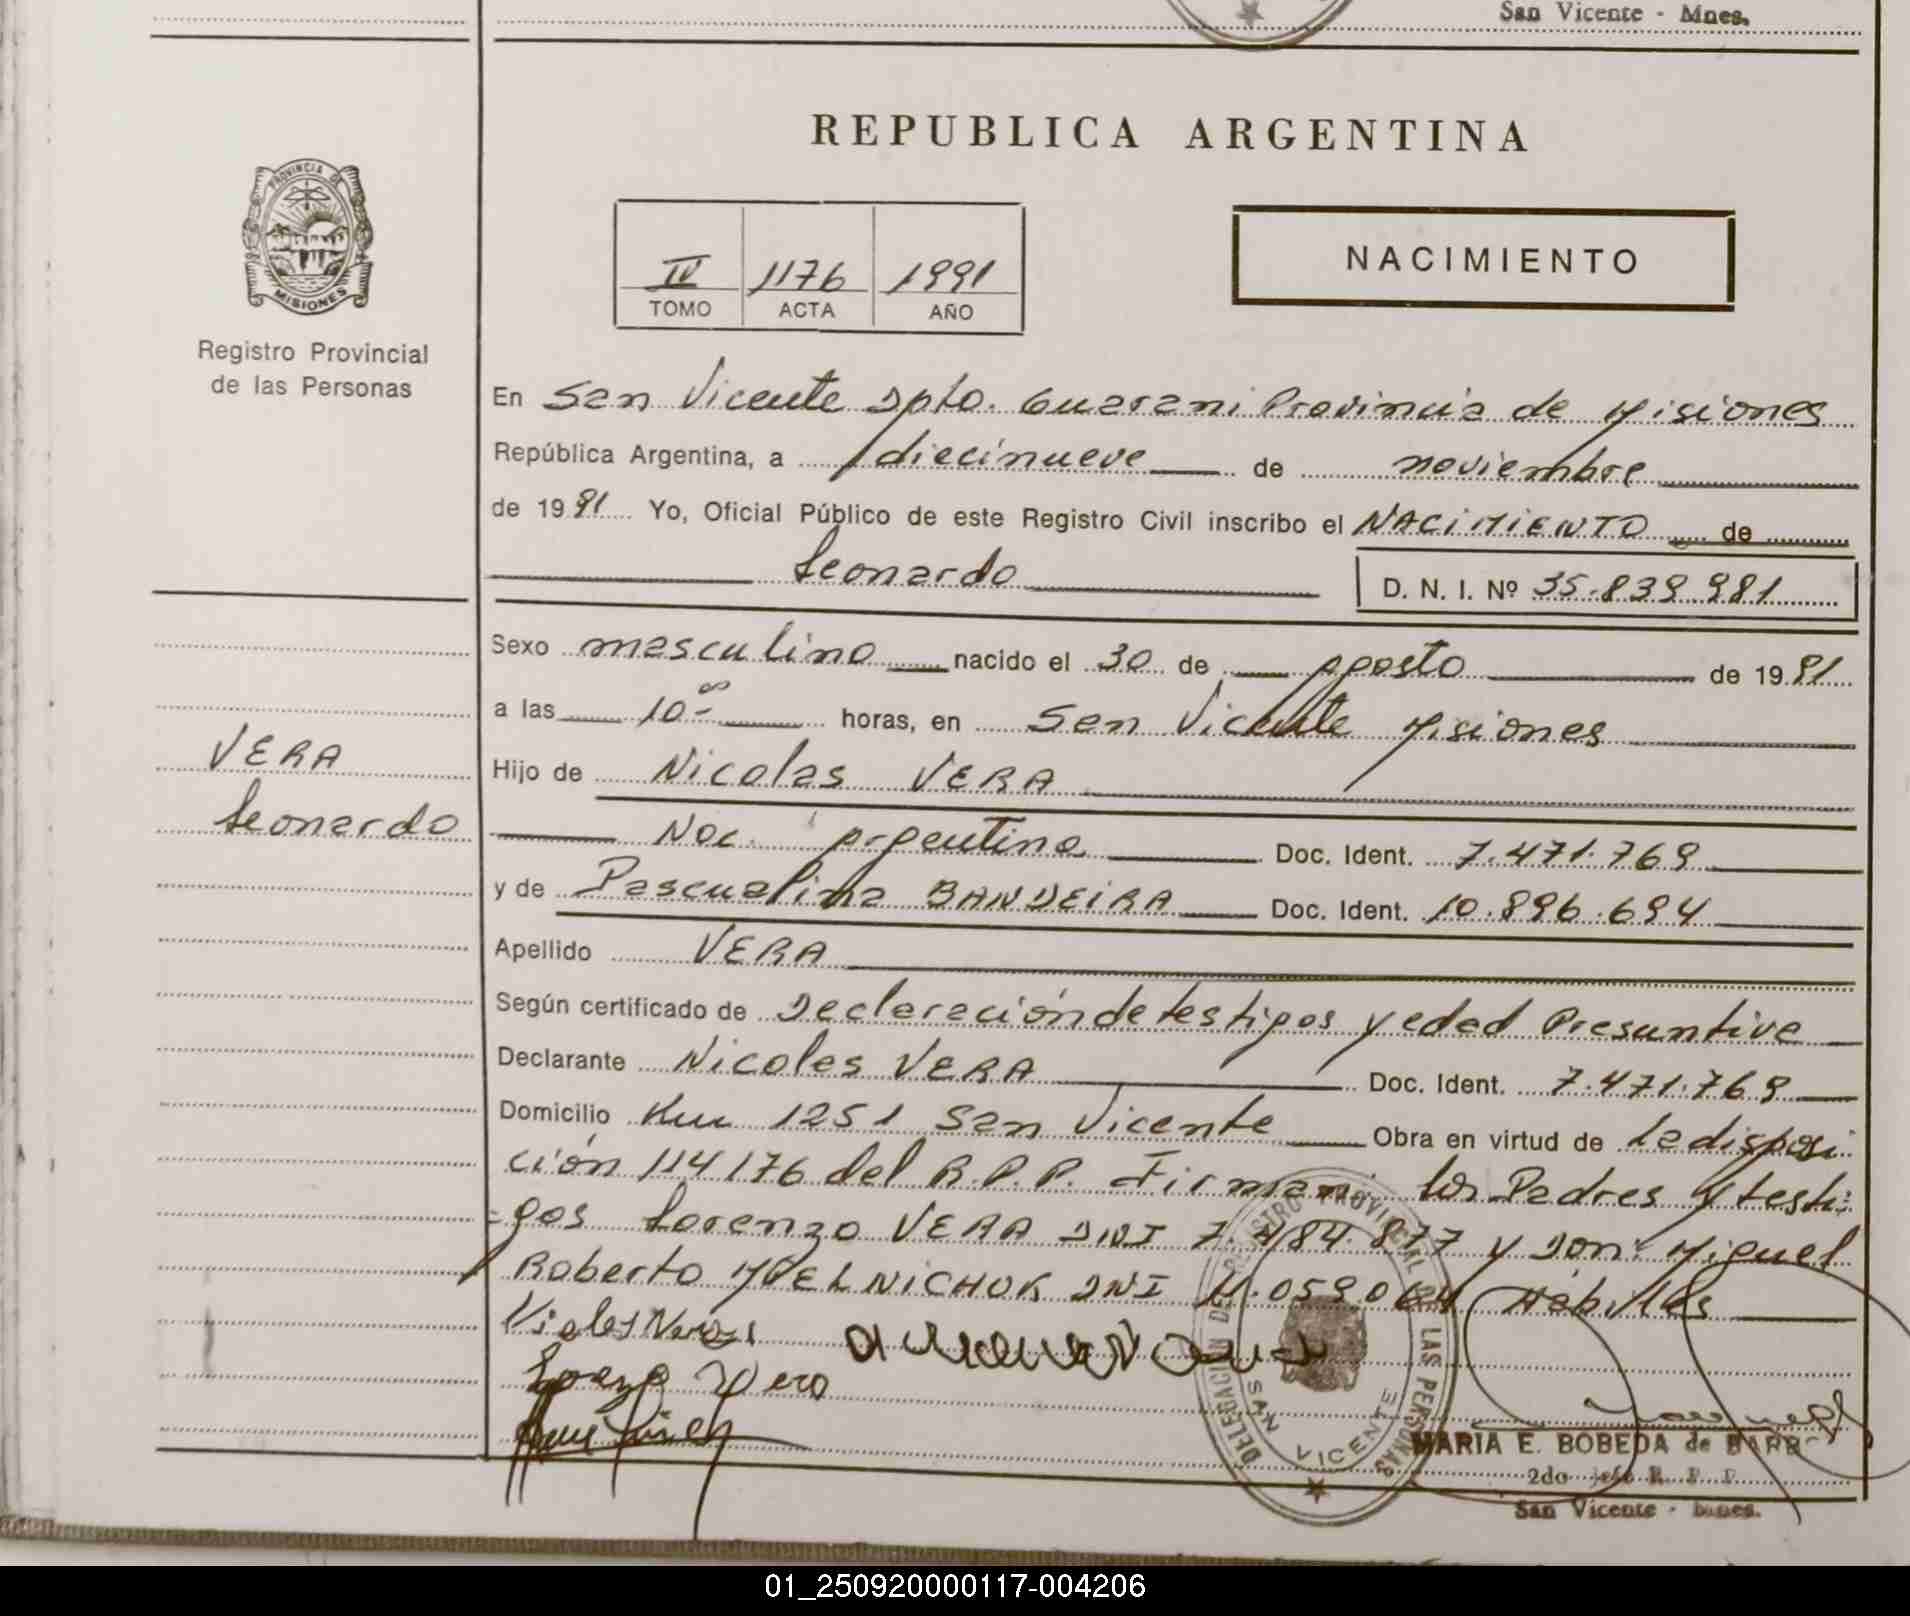 San Vicente - Mnes.
REPUBLICA ARGENTINA
PROVINCIA DE
MISIONES
Registro Provincial
de las Personas
IV 1176 1991
TOMO ACTA AÑO
NACIMIENTO
En San Vicente Dpto. Guarani Provincia de Misiones
República Argentina, a diecinueve de noviembre
de 1991 Yo, Oficial Público de este Registro Civil inscribo el NACIMIENTO de
Leonardo D. N. I. Nº 35.839.981
Sexo masculino nacido el 30 de Agosto de 1991
a las 10 00 horas, en San Vicente Misiones
VERA
Hijo de Nicolas VERA
Leonardo
Nac. Argentina Doc. Ident. 7.471.769
y de Pascualina BANDEIRA Doc. Ident. 10.896.694
Apellido VERA
Según certificado de Declaración de testigos y edad Presuntiva
Declarante Nicolas VERA Doc. Ident. 7.471.769
Domicilio Km 1251 San Vicente Obra en virtud de la disposi
ción 114/76 del R.P.P. Firman los Padres y testi
gos Lorenzo VERA DNI 7.484.877 y Don Miguel
Roberto MELNICHUK DNI 11.059.064 Hábiles
Vera
DELEGACION DEL REGISTRO PROVINCIAL DE LAS PERSONAS
SAN VICENTE
MARIA E. BOBEDA de
2do Jefe R. P. P.
San Vicente - Mnes.
01_250920000117-004206